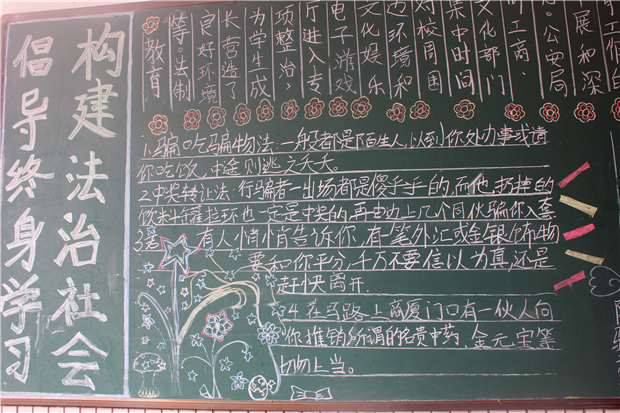 构建法治社会
倡导终身学习
展和深
公安局
工商、
文化部门
集中时间
对校周围
边环境和
文化娱乐
电子游戏
厅进入专
项整治,
为学生成
长营造了
良好环境
等法制
教育
1.骗吃骗物法:一般者是陌生人,以到你处办事或请
你吃饮,中途则逃之夭夭。
2.中奖转让法:行骗者一出场都是傻乎乎的,而他扔掉的
饮料拉环也一定是中奖的,再由边上几个同伙骗你入套
3.若有人悄悄告诉你,有一笔外汇或金银饰物
要和你平分,千万不要信以为真还是
赶快离开.
4.在马路上商厦门口有一伙人向
你推销所谓的贵中药、金元宝等
切勿上当。